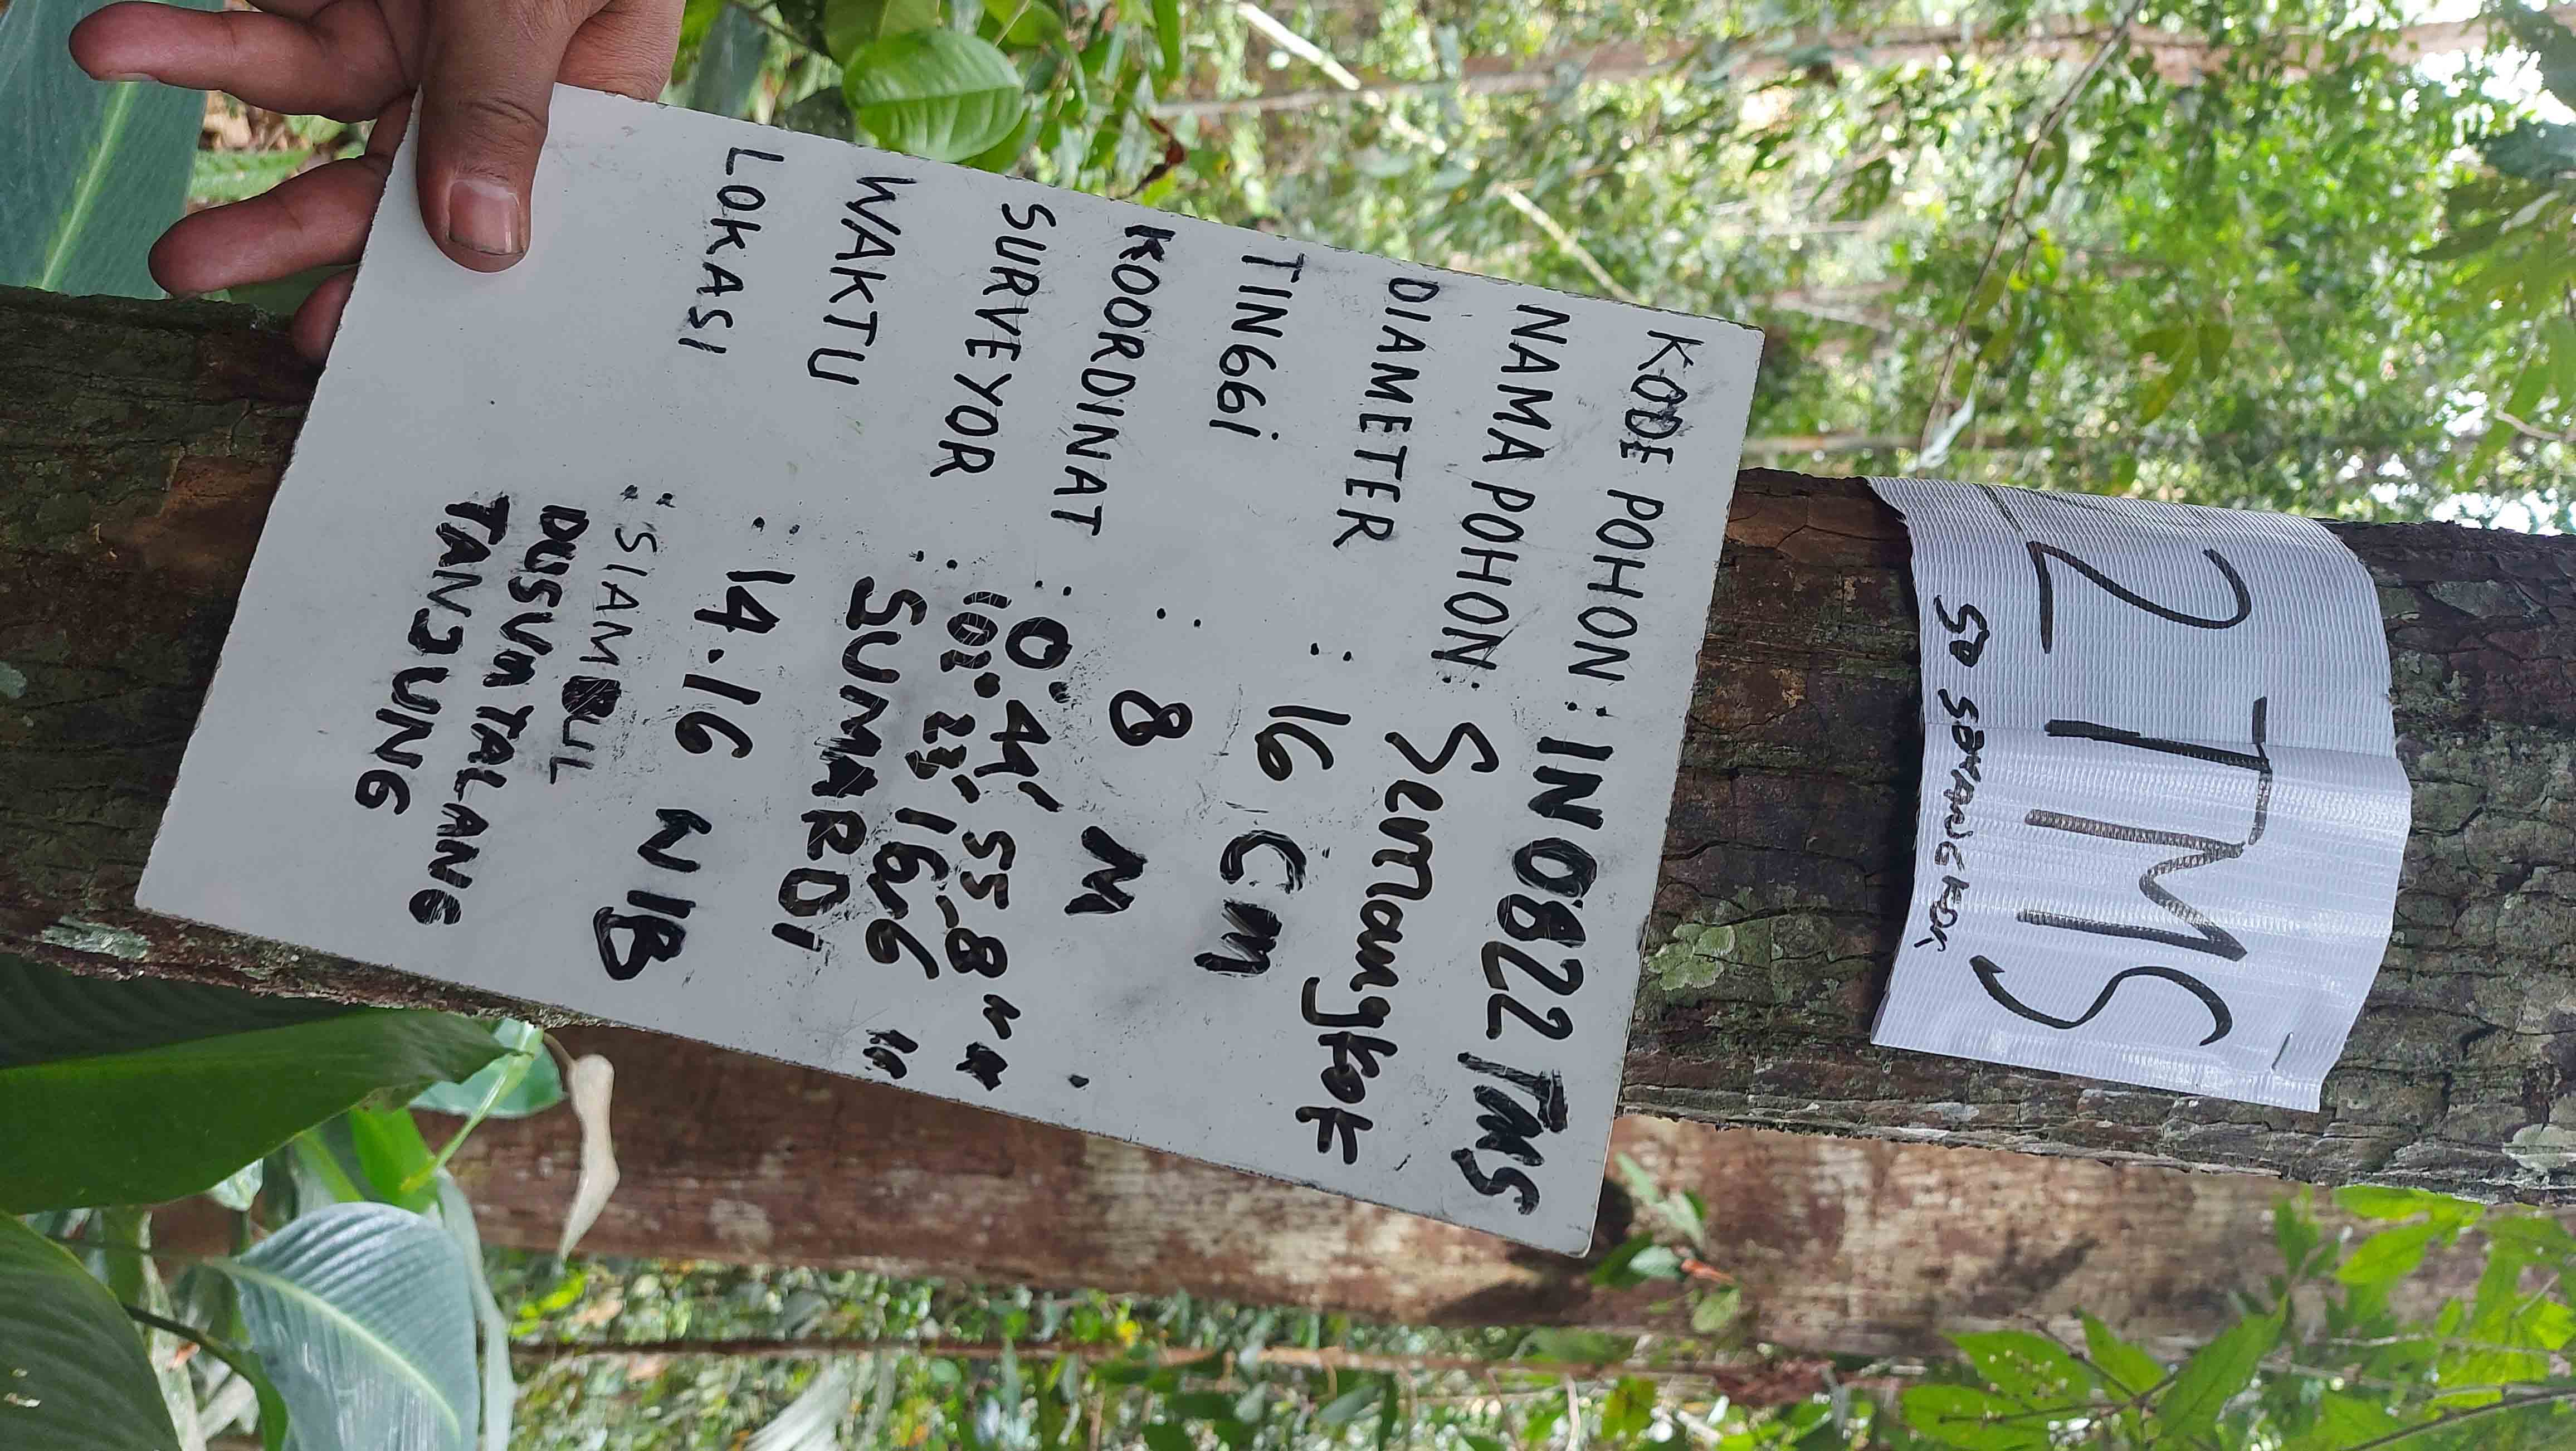 2 TMS
50 SEMANGKOK
KODE POHON : IN0822 TMS
NAMA POHON : Semangkok
DIAMETER : 16 cm
TINGGi : 8 M
KOORDINAT : 0° 44' 55,8 "
102° 23' 16,6 "
SURVEYOR : SUMARDi
WAKTU : 14.16 WIB
LOKASI : SIAMBUL
DUSUN TALANG
TANJUNG